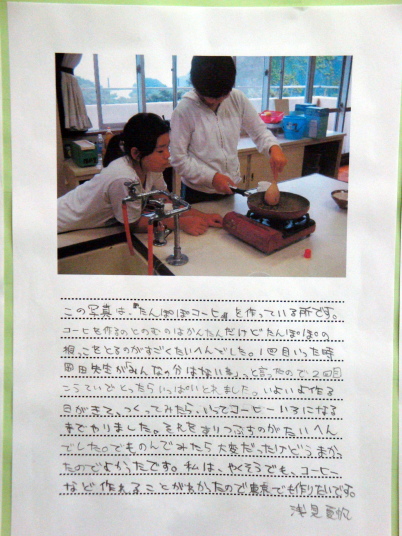 この写真は、『たんぽぽコーヒー』を作っている所です。
コーヒを作るのとのむのはかんたんだけどたんぽぽの
根っこをとるのがすごくたいへんでした。1回目いった時
岡田先生がみんなの分はないましと言ったので2回目
こうていでとったらいっぱいとれました。いよいよ作る
日がきて、つくってみたら、いってコーヒーいろになる
までやりました。それをすりつぶすのがたいへん
でした。でものんでみたら大変だったけどうまかっ
たのでよかったです。私は、やくそうでも、コーヒー
など作れることがわかったので東京でも作りたいです。
浅見